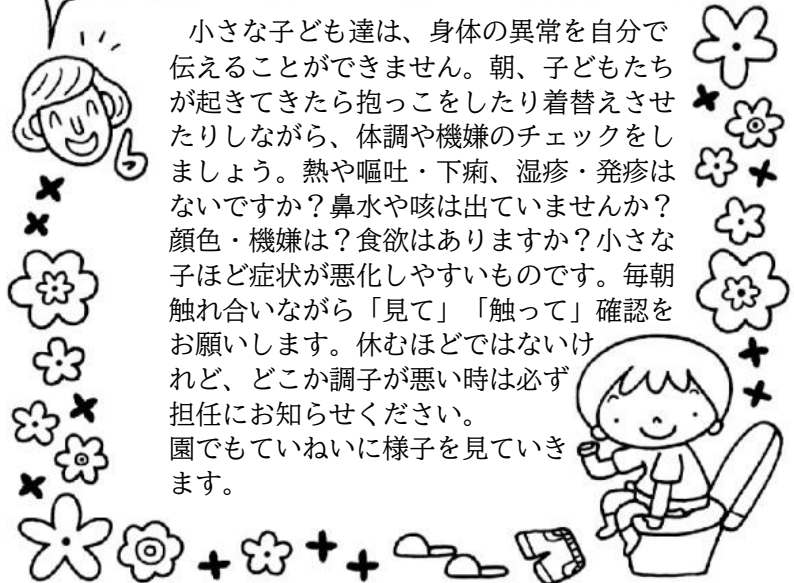 小さな子ども達は、身体の異常を自分で
伝えることができません。朝、子どもたち
が起きてきたら抱っこをしたり着替えさせ
たりしながら、体調や機嫌のチェックをし
ましょう。熱や嘔吐・下痢、湿疹・発疹は
ないですか？鼻水や咳は出ていませんか？
顔色・機嫌は？食欲はありますか？小さな
子ほど症状が悪化しやすいものです。毎朝
触れ合いながら「見て」「触って」確認を
お願いします。休むほどではないけ
れど、どこか調子が悪い時は必ず
担任にお知らせください。
園でもていねいに様子を見ていき
ます。